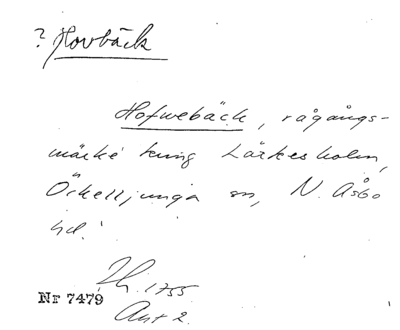 ? Hovbäck
Hofwebäck, rågångs-
märke kring Lärkesholm,
Örkelljunga sn, N. Åsbo
hd.
1755
Nr 7479
Akt 2.